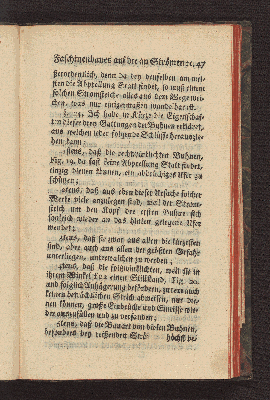 Faschinenbaues auf die an Strömen ꝛc. 47
sserordentlich, denn da bey denselben am mei-
sten die Abprellung Statt findet, so muß einem
solchen Stromstriche alles aus dem Wege wei-
chen, was nur einigermaßen wandelbar ist.
§. 24. Ich habe in Kürze die Eigenschaf-
ten dieser drey Gattungen der Buhnen erkläret,
aus welchen jeder folgende Schlüsse herauszie-
hen kann:
1stens, daß die rechtwinklichten Buhnen,
Fig. 19. da fast keine Abprellung Statt findet,
einzig dienen kann, ein abbrüchiges Ufer zu
schützen;
2tens, daß aus eben dieser Ursache solcher
Werke viele anzulegen sind, weil der Strom-
strich um den Kopf der ersten Buhne sich
sogleich wieder an das hinter gelegene Ufer
wendet;
3tens, daß sie zwar aus allen die kürzesten
sind, aber auch aus allen der größten Gefahr
unterliegen, unterwaschen zu werden;
4tens, daß die spitzwinklichten, weil sie in
ihrem Winkel einen Stillstand, Fig. 20.
und folglich Anhägerung befördern, zu dem auch
keinen beträchtlichen Strich abweisen, nur die-
nen können, große Einbrüche und Einrisse wie-
der auszufüllen und zu versanden;
5tens, daß die Bauart von vielen Buhnen,
besonders bey reissenden Strö-
höchst be-